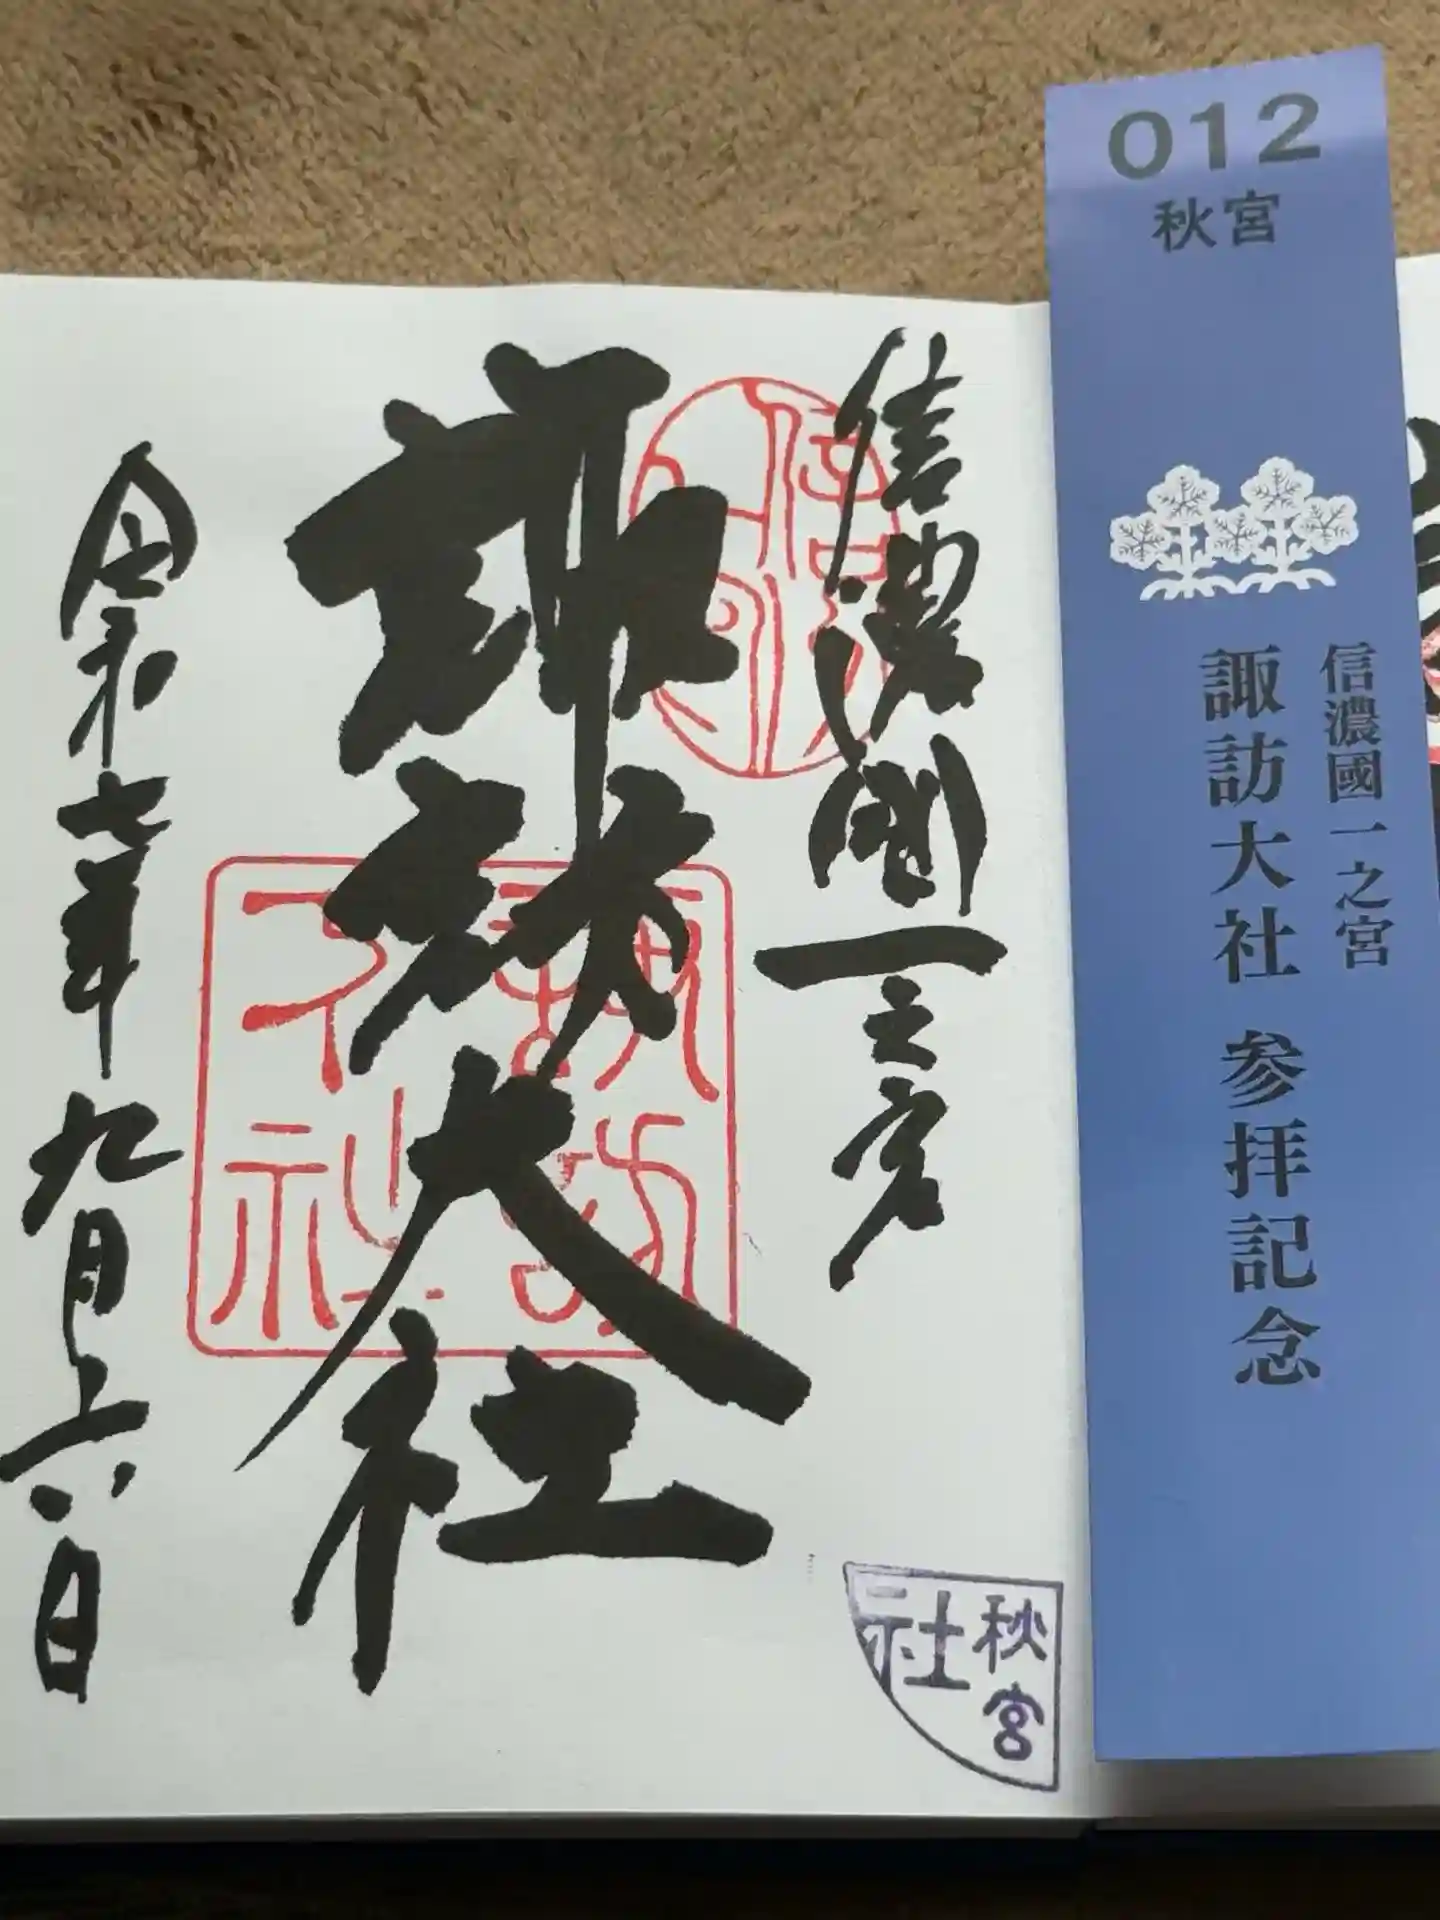 012
秋宮
信濃國一之宮
諏訪大社 参拝記念
信濃國一之宮
諏訪大社
令和七年九月十六日
諏訪大社
秋宮
社